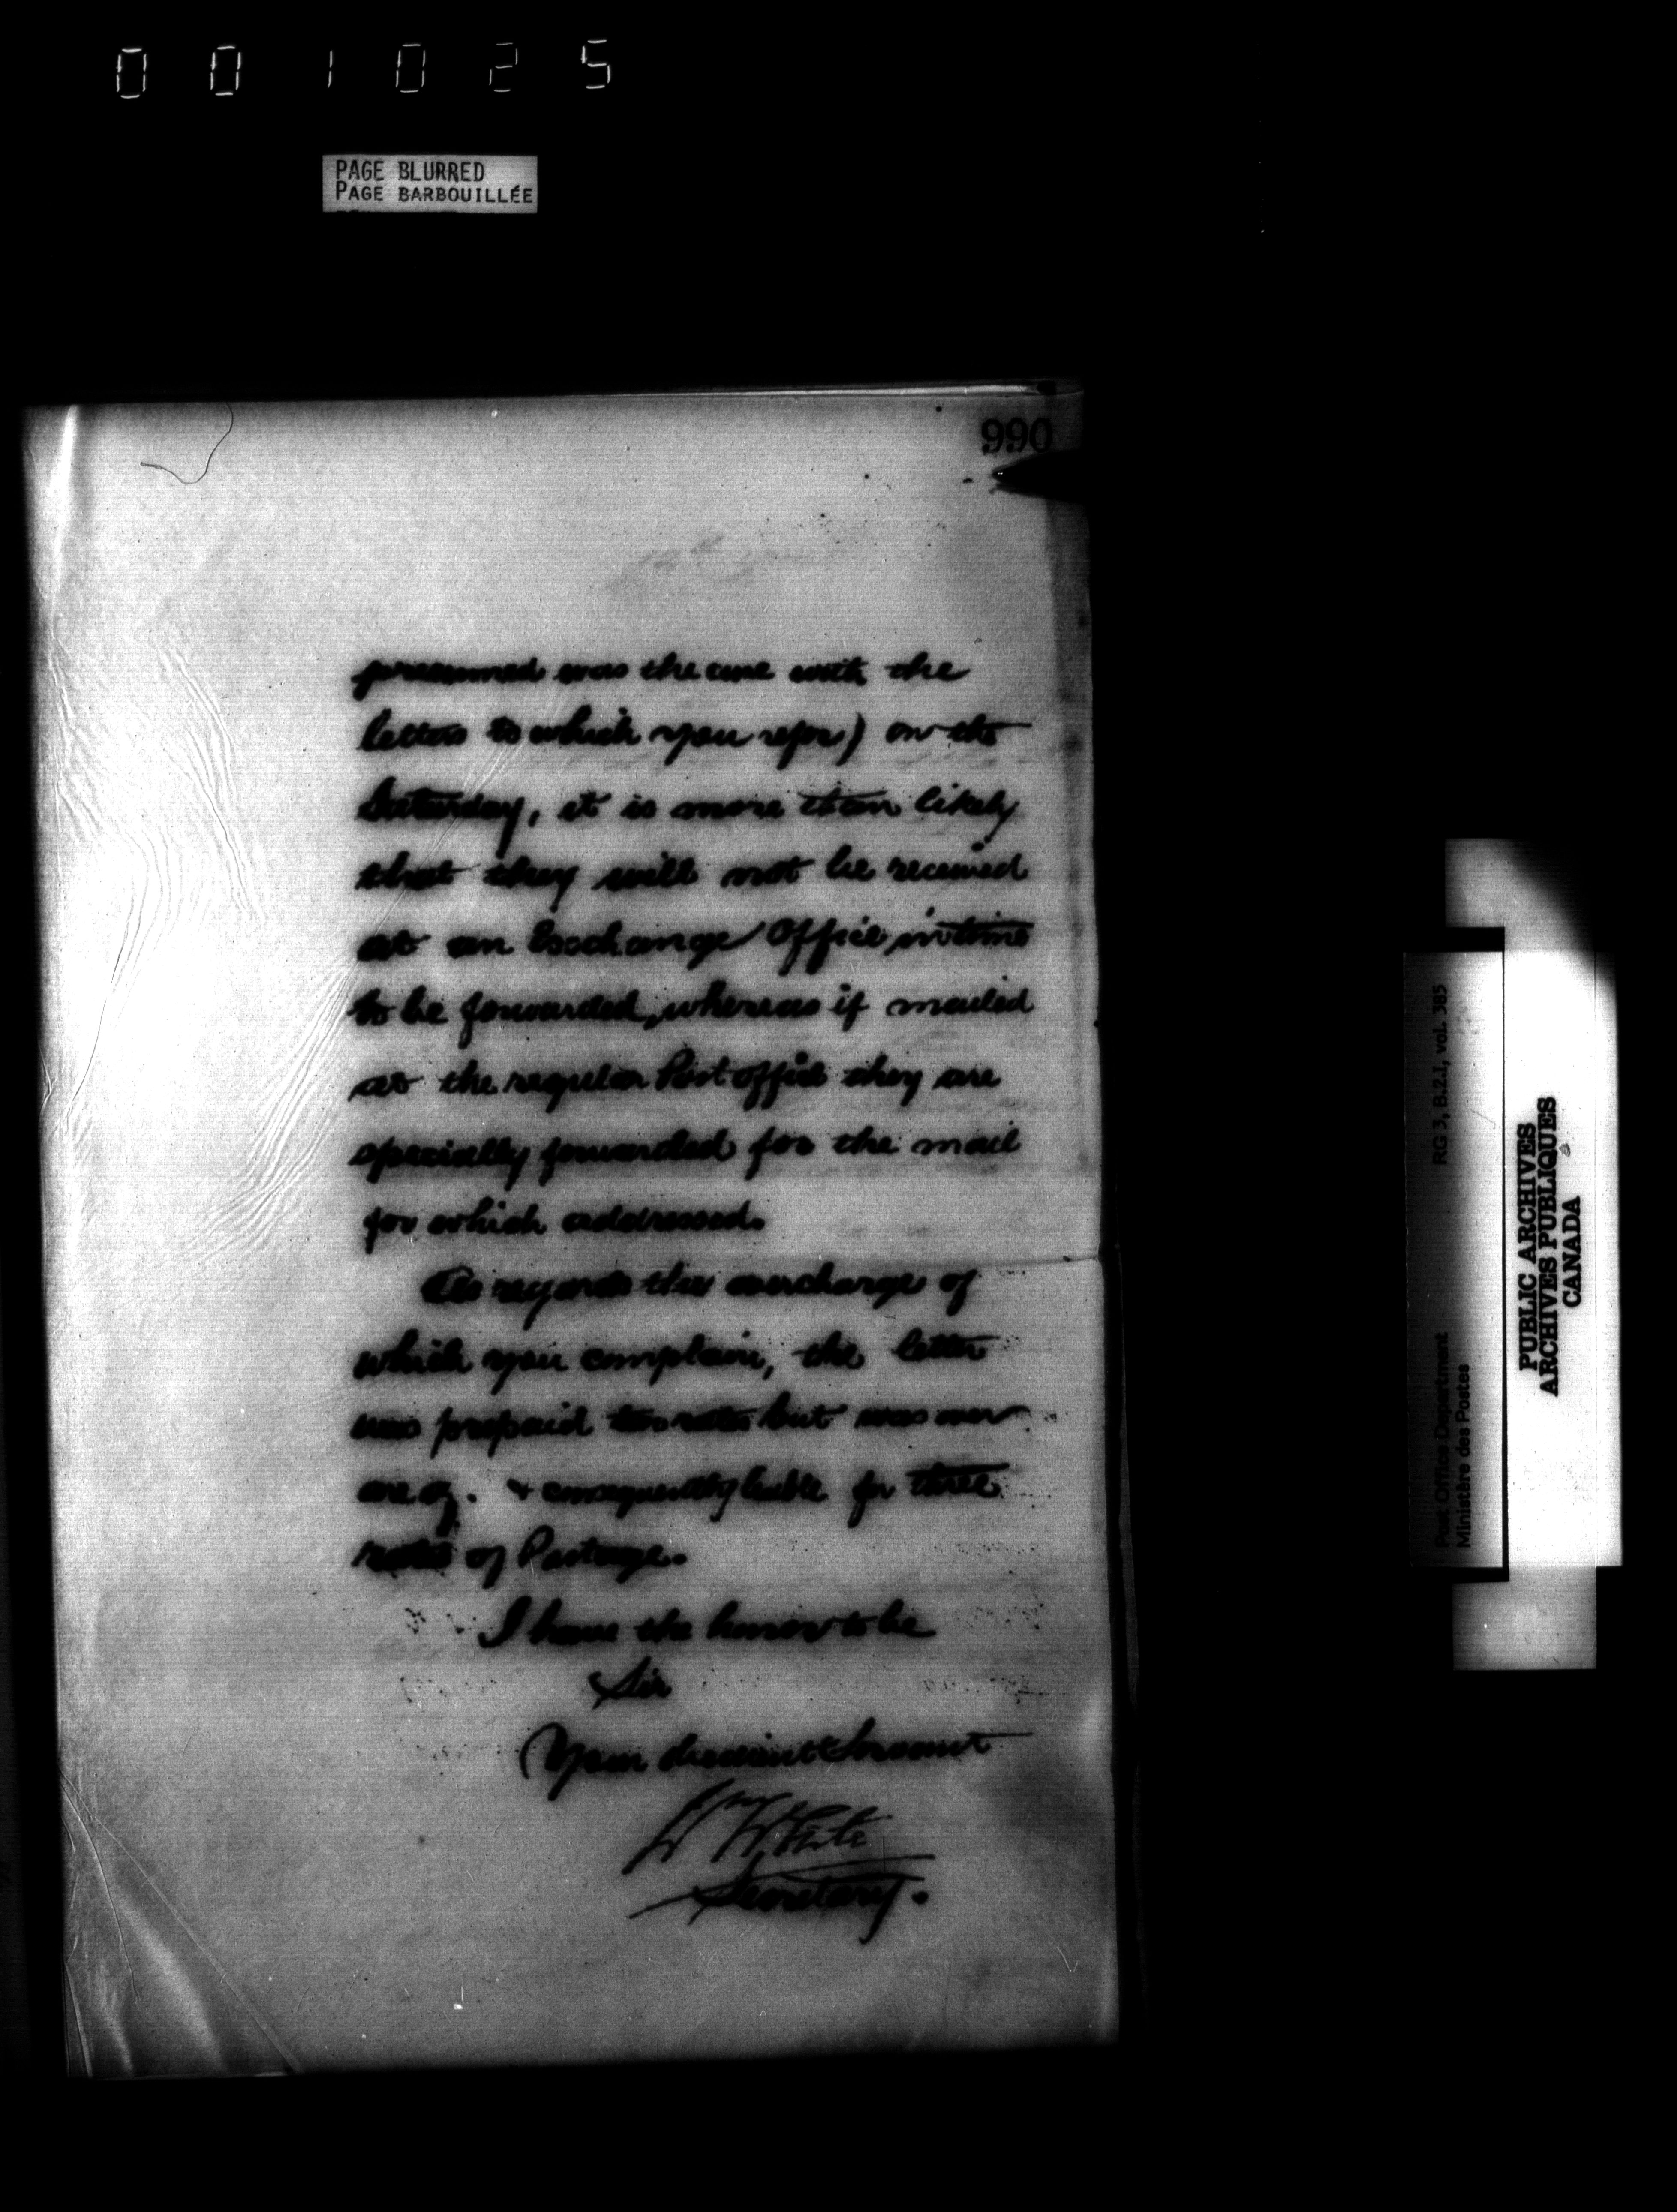 001025
PAGE BLURRED
PAGE BARBOUILLÉE
990
presumed was the case with the
letters to which you refer) on the
Saturday, it is more than likely
that they will not be received
at an Exchange Office in time
to be forwarded, whereas if mailed
at the regular Post office they are
specially forwarded for the mail
for which addressed.
As regards the overcharge of
which you complain, the letter
was prepaid two rates but was over
one oz. & consequently liable for three
rates of Postage.
I have the honor to be
Sir
Your obedient Servant
Wm White
Secretary.
Post Office Department RG 3, B.2.I, vol. 385
Ministère des Postes
PUBLIC ARCHIVES
ARCHIVES PUBLIQUES
CANADA